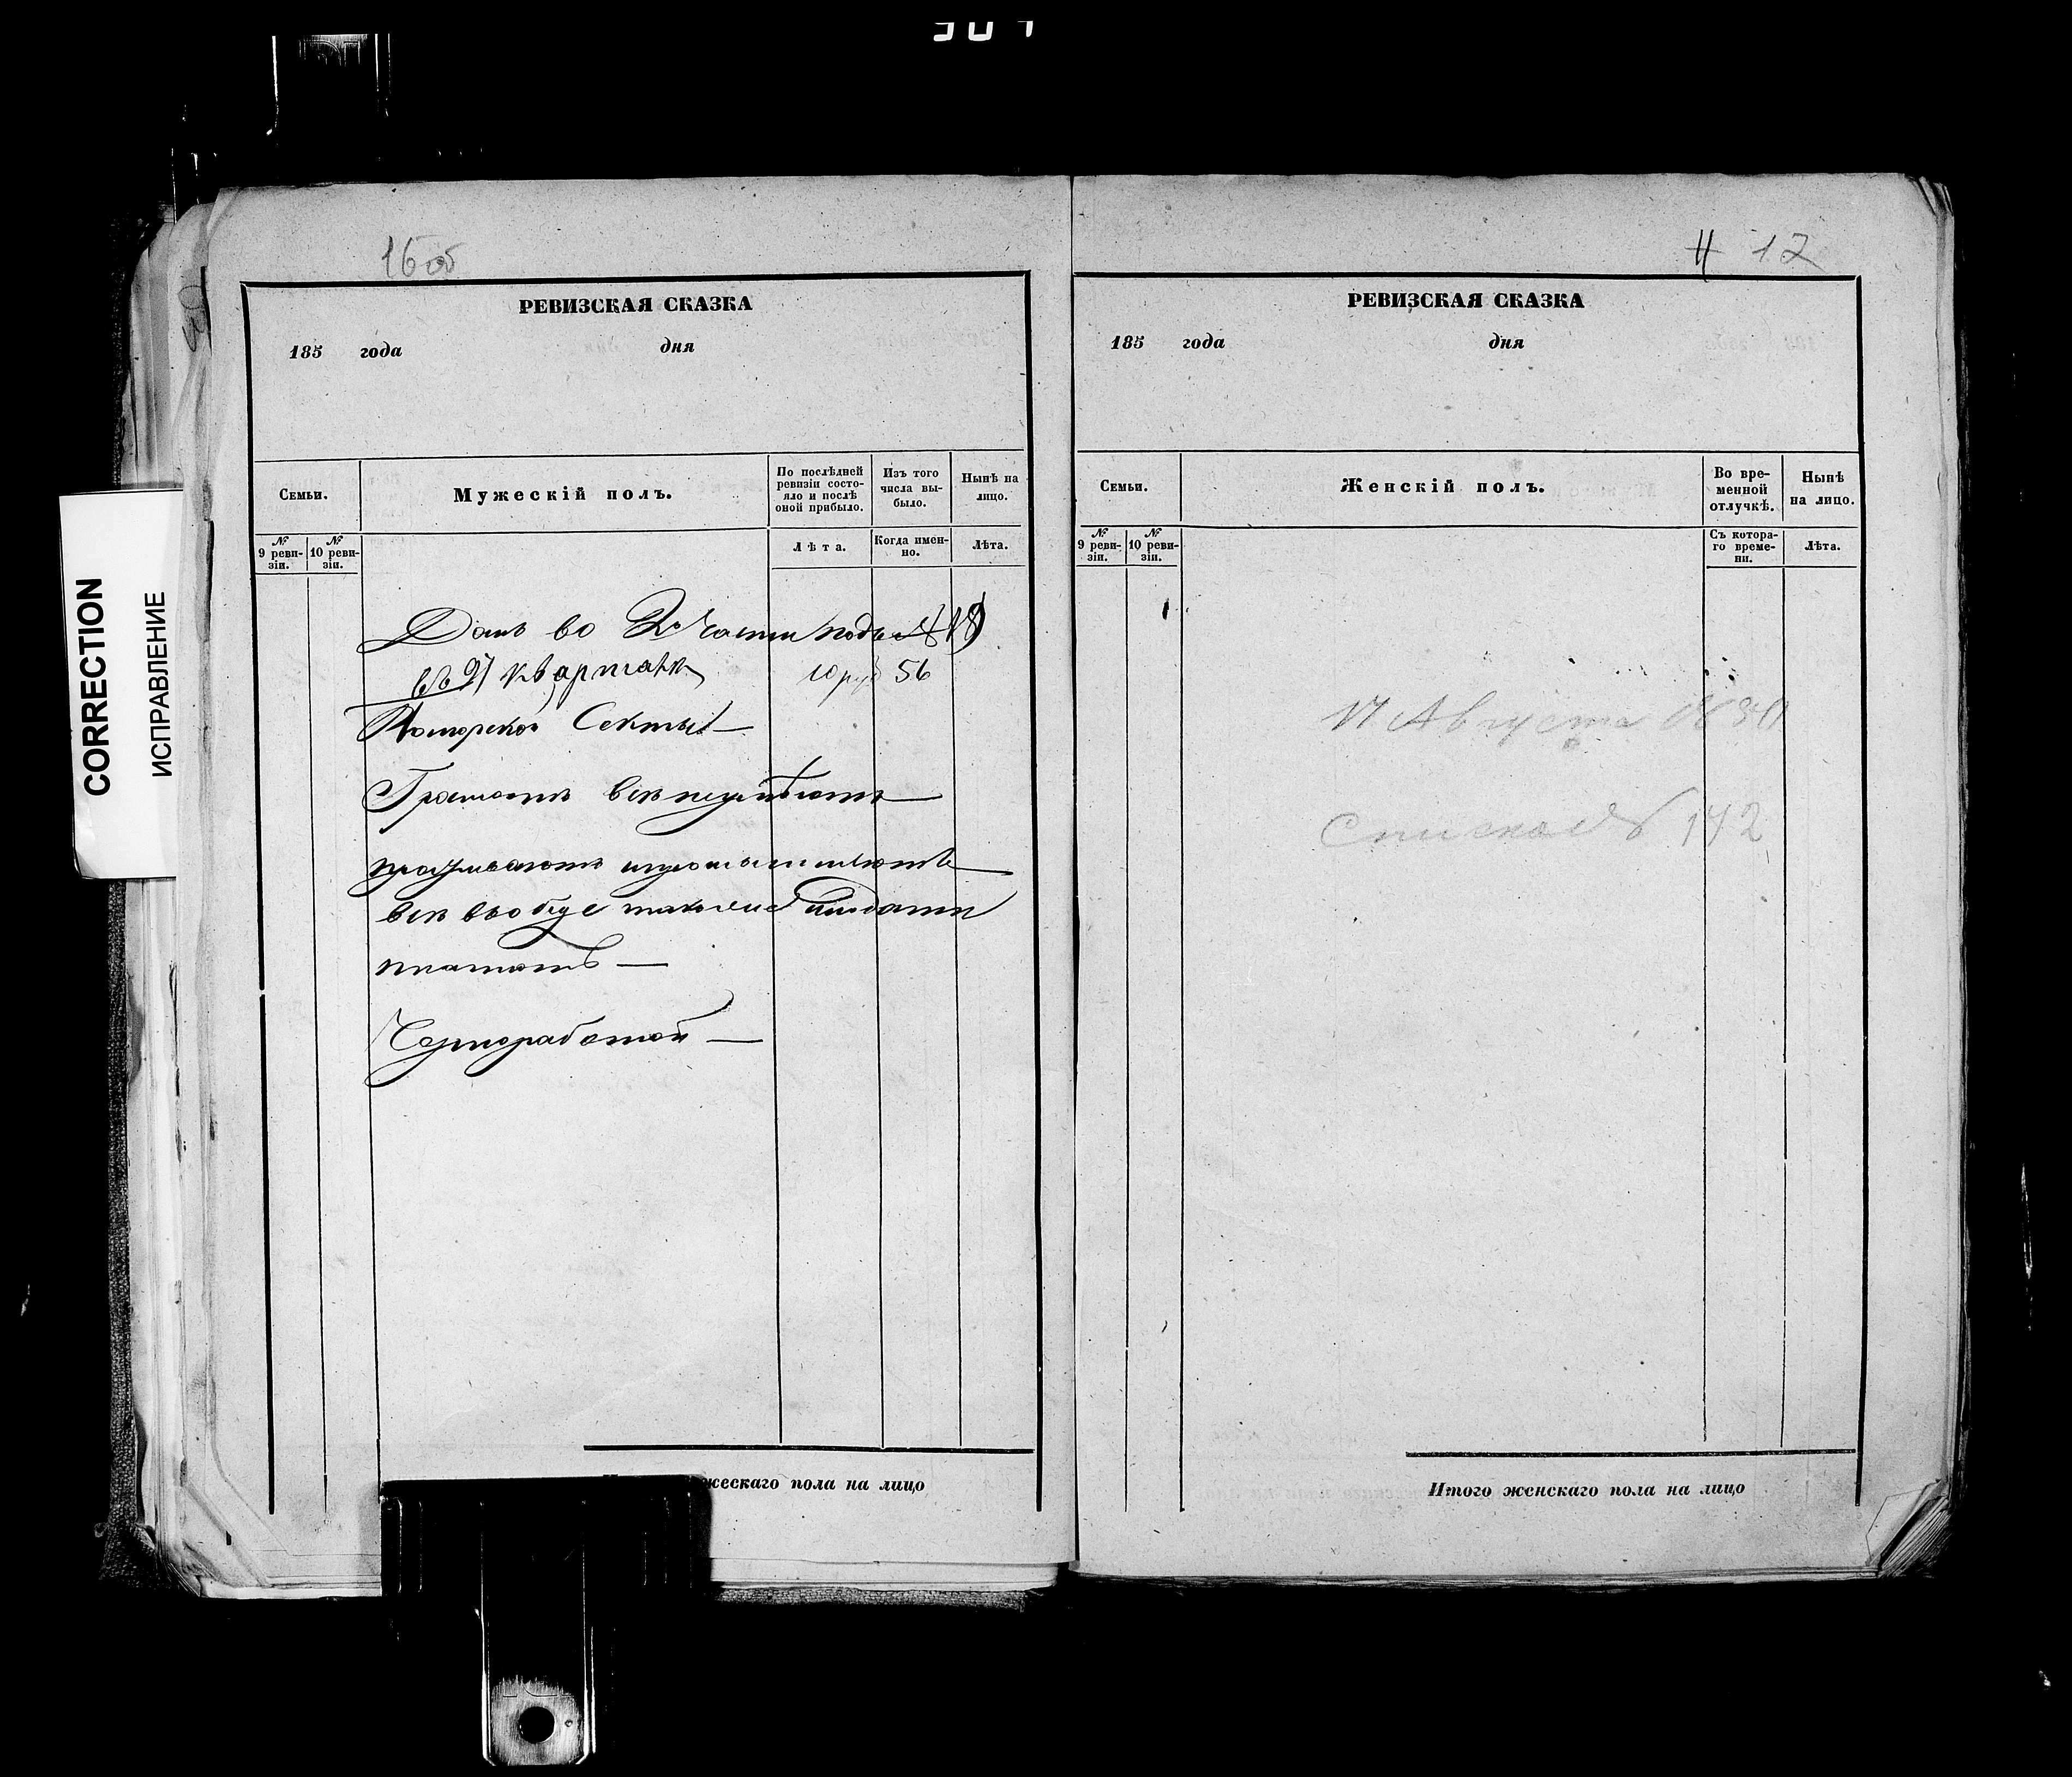 CORRECTION
ИСПРАВЛЕНИЕ
16 об
РЕВИЗСКАЯ СКАЗКА
185 года дня
Семьи.
Мужескій полъ.
По послѣдней ревизіи состояло и послѣ оной прибыло.
Изъ того числа выбыло.
Нынѣ на лицо.
№ 9 ревизіи.
№ 10 ревизіи.
Лѣта.
Когда именно.
Лѣта.
Домъ во 2 Части подъ № 18
въ 27 кварталѣ 10 руб 56
Поморской Секты
Грамотѣ всѣ неумѣютъ
проживаютъ
всѣ подати
платятъ
Чернорабочей
жескаго пола на лицо
17
РЕВИЗСКАЯ СКАЗКА
185 года дня
Семьи.
Женскій полъ.
Во временной отлучкѣ.
Нынѣ на лицо.
№ 9 ревизіи.
№ 10 ревизіи.
Съ котораго времени.
Лѣта.
17 Августа
142
Итого женскаго пола на лицо